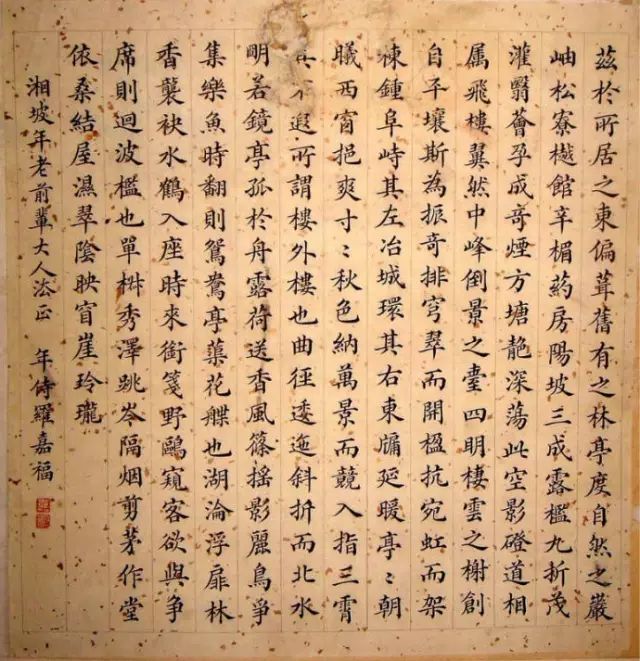 茲於所居之東偏葺舊有之林亭度自然之巖
岫松寮檖館辛楣葯房陽坡三成露檻九折茂
灌翳薈孕成奇煙方塘艶深蕩此空影磴道相
属飛樓翼然中峰倒景之臺四明棲雲之榭創
自平壤斯為振奇排穹翠而開楹抗宛虹而架
棟鍾阜峙其左冶城環其右東牖延暖亭〻朝
曦西窗挹爽寸〻秋色納萬景而競入指三霄
其不遐所謂樓外樓也曲徑逶迤斜折而北水
明若鏡亭孤於舟露荷送香風篠搖影麗鳥爭
集樂魚時翻則鴛鴦亭蕖花艓也湖淪浮扉林
香襲袂水鶴入座時來銜箋野鷗窺客欲與爭
席則迴波檻也單椒秀澤跳岑隔烟剪茅作堂
依桑結屋濕翠陰映窗崖玲瓏
湘坡年老前輩大人法正 年侍羅嘉福